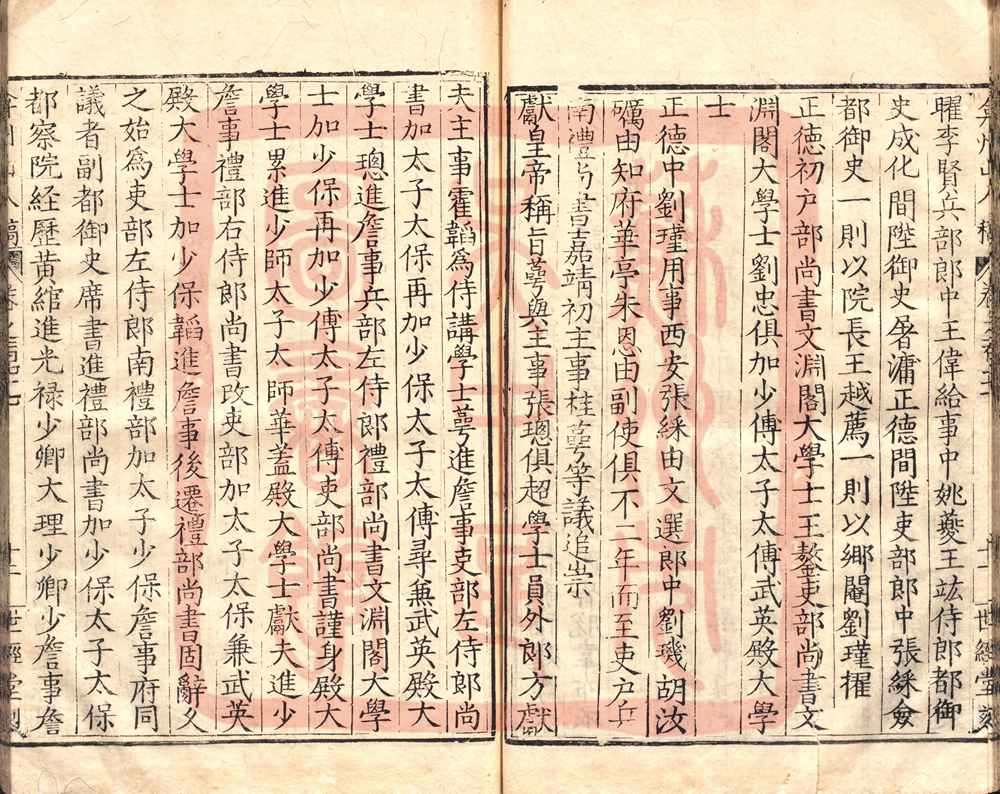 曜李賢兵部郎中王偉給事中姚夔王竑侍郎都御
史成化間陞御史屠滽正德間陞吏部郎中張綵僉
都御史一則以院長王越薦一則以鄉閹劉瑾擢
正德初户部尚書文淵閣大學士王鏊吏部尚書文
淵閣大學士劉忠俱加少傅太子太傅武英殿大學
士
正德中劉瑾用事西安張綵由文選郎中劉璣胡汝
礪由知府華亭朱恩由副使俱不二年而至吏户兵
南禮尚書嘉靖初主事桂蕚等議追崇
獻皇帝稱旨蕚與主事張璁俱超學士員外郎方獻
夫主事霍韜為侍講學士蕚進詹事吏部左侍郎尚
書加太子太保再加少保太子太傅尋兼武英殿大
學士璁進詹事兵部左侍郎禮部尚書文淵閣大學
士加少保再加少傅太子太傅吏部尚書謹身殿大
學士累進少師太子太師華蓋殿大學士獻夫進少
詹事禮部右侍郎尚書改吏部加太子太保兼武英
殿大學士加少保韜進詹事後遷禮部尚書固辭久
之始為吏部左侍郎南禮部加太子少保詹事府同
議者副都御史席書進禮部尚書加少保太子太保
都察院経歷黃綰進光禄少卿大理少卿少詹事詹
世經堂刻